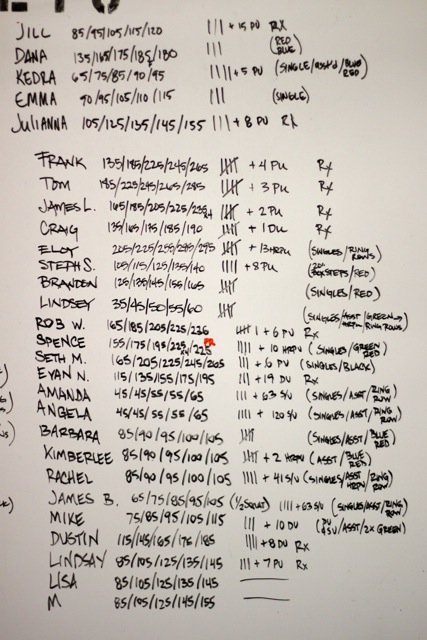 JILL 85/95/105/115/120 |||| + 15 PU RX
DANA 135/165/175/185/180 ||| (RED BLUE)
KEDRA 65/75/85/90/95 |||| +5 PU (SINGLE/ASST'D/BLUE RED)
EMMA 90/95/105/110/115 ||| (SINGLE)
JULIANNA 105/125/135/145/155 |||| + 8 PU RX
FRANK 135/185/225/245/265 + 4 PU Rx
TOM 185/225/245/265/285 + 3 PU Rx
JAMES L. 165/185/205/225/235 + 2 PU Rx
CRAIG 135/165/175/185/190 + 1 DU Rx
ELOY 205/225/255/275/295 + 13 HRPU (SINGLES/RING ROWS)
STEPH S. 105/115/125/135/140 |||| + 8 PU (BOX STEPS/RED)
BRANDON 125/135/145/155/165 (SINGLES/RED)
LINDSEY 35/45/50/55/60 (SINGLES/ASST/GREEN RING ROWS)
ROB W. 165/185/205/225/236 + 6 PU Rx
SPENCE 155/175/195/225/225 |||| + 10 HRPU (SINGLES/GREEN RED)
SETH M. 165/205/225/245/265 + 6 PU (SINGLES/BLACK)
EVAN N. 115/135/155/175/195 + 19 DU Rx
AMANDA 45/45/55/55/65 |||| + 63 SU (SINGLES/ASST/RING ROW)
ANGELA 45/45/55/55/65 |||| + 120 SU (SINGLES/ASST/RING ROW)
BARBARA 85/90/95/100/105 (SINGLES/ASST/BLUE RED)
KIMBERLEE 85/90/95/100/105 + 2 HRPU (ASST/BLUE RED)
RACHEL 85/90/95/100/105 |||| + 41 SU (SINGLES/ASST/RING HRPU ROW)
JAMES B. 65/75/85/95/105 (1/2 SQUAT) |||| + 63 SU (SINGLES/ASST/RING ROW)
MIKE 75/85/95/105/115 ||| + 10 DU (DU 4SU/ASST/2X GREEN)
DUSTIN 115/145/165/175/185 |||| + 8 DU Rx
LINDSAY 85/105/125/135/145 ||| + 7 PU Rx
LISA 85/105/125/135/145
M 85/105/125/145/155